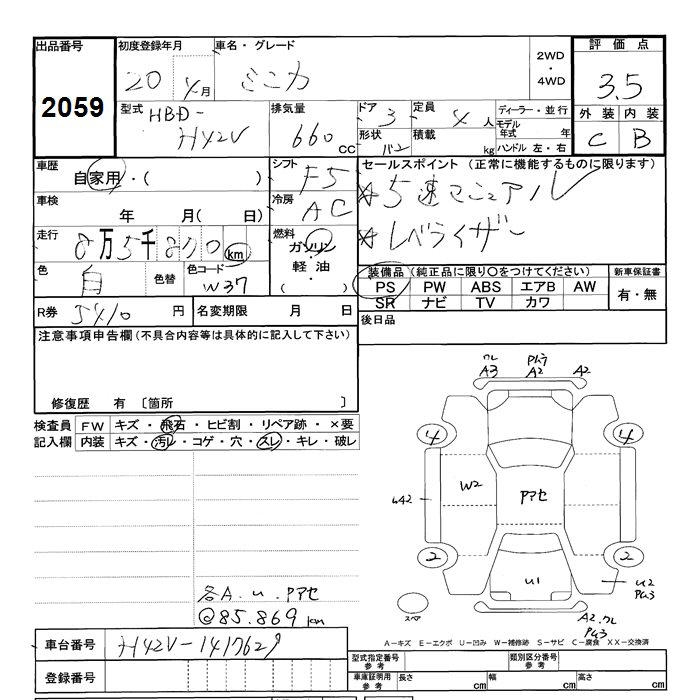 出品番号 初度登録年月 車名・グレード 2WD・4WD 評価点
2059 20 4月 ミニカ 3.5
型式 HBD-H42V 排気量 660 cc ドア 3 定員 4人 ディーラー・並行
形状 バン 積載 kg モデル年式 年 ハンドル 左・右
外装 内装
C B
車歴 自家用・( ) シフト F5 セールスポイント (正常に機能するものに限ります)
☆5速マニュアル
車検 年 月( 日) 冷房 AC
☆レベライザー
走行 8万5千8 0 km 燃料 ガソリン・軽油・( )
色 白 色替 色コード W37
装備品 (純正品に限り〇をつけてください) 新車保証書
PS PW ABS エアB AW 有・無
SR ナビ TV カワ
R券 5410 円 名変期限 月 日 後日品
注意事項申告欄 (不具合内容等は具体的に記入して下さい)
修復歴 有 〔箇所 〕
検査員記入欄 FW キズ・飛石・ヒビ割・リペア跡・×要
内装 キズ・汚レ・コゲ・穴・スレ・キレ・破レ
クレ A3 A2 A2
4 4
W2 アアセ
U42
2 2
U1 U2
スペア
A2.クレ
各A.u.アアセ
@85.869km
A-キズ E-エクボ U-凹み W-補修跡 S-サビ C-腐食 XX-交換済
車台番号 H42V-1417629
登録番号
型式指定番号 参考 類別区分番号 参考
車庫証明用 参考 長さ cm 幅 cm 高さ cm